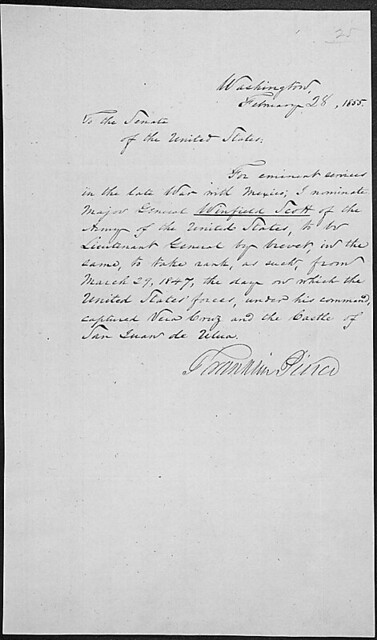 25
Washington,
February 28, 1855.
To the Senate
of the United States:
For eminent services
in the late War with Mexico, I nominate
Major General Winfield Scott of the
Army of the United States, to be
Lieutenant General by brevet in the
same, to take rank, as such, from
March 29, 1847, the day on which the
United States forces, under his command,
captured Vera Cruz and the Castle of
San Juan de Ulua.
Franklin Pierce